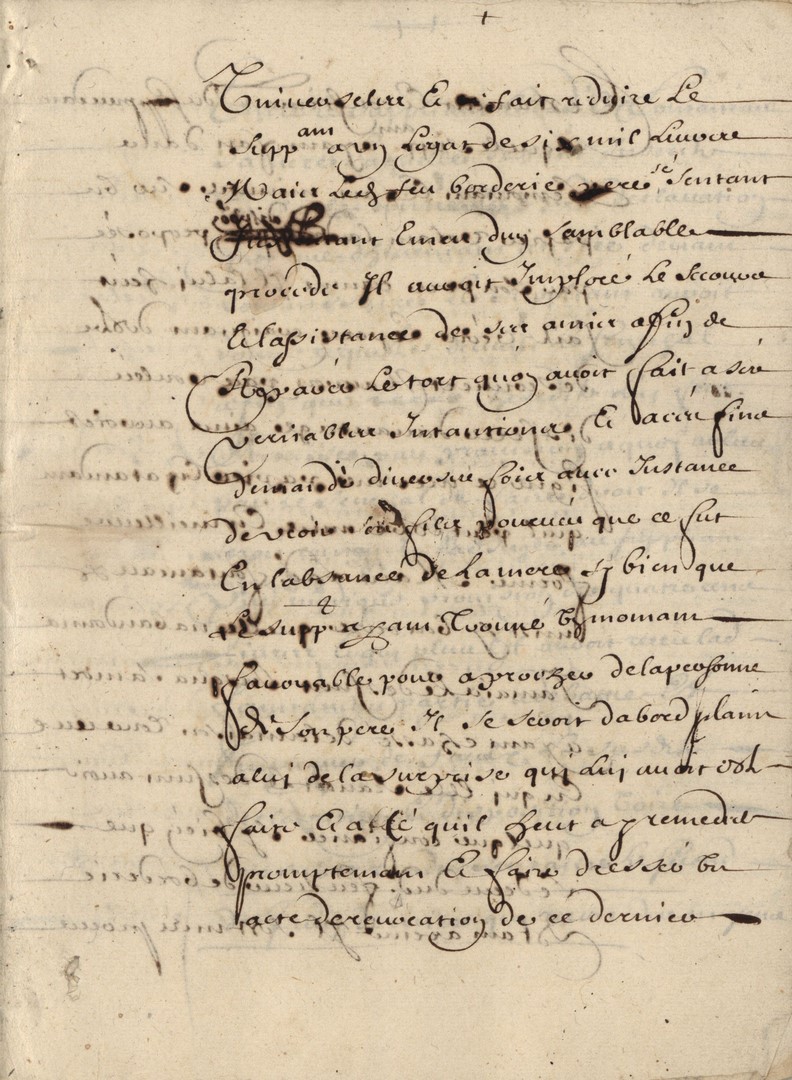 +
Et fait reduire Le
Supp^ant a un Legat de six mil Liuvres
Mais Led feu borderie pere se sentant
dun samblable
procede Il auoit Imploré Le secours
Et lassistance de ses amis affin de
Reparer Le tort quon auoit fait a ses
veritables Intantions Et a cete fin a
demandé diverses fois avec Instance
de voir son filz pourueu que ce fut
En labsance de La mere sy bien que
Le supp^t ayant trouué un momant
fauorable pour aprocher de la personne
de son pere Il se seroit dabord plaint
a luy de la surprise quy Luy auoit esté
faite Et a quil faut a y remedier
promptemant Et faire dresser un
acte de reuocation de ce dernier